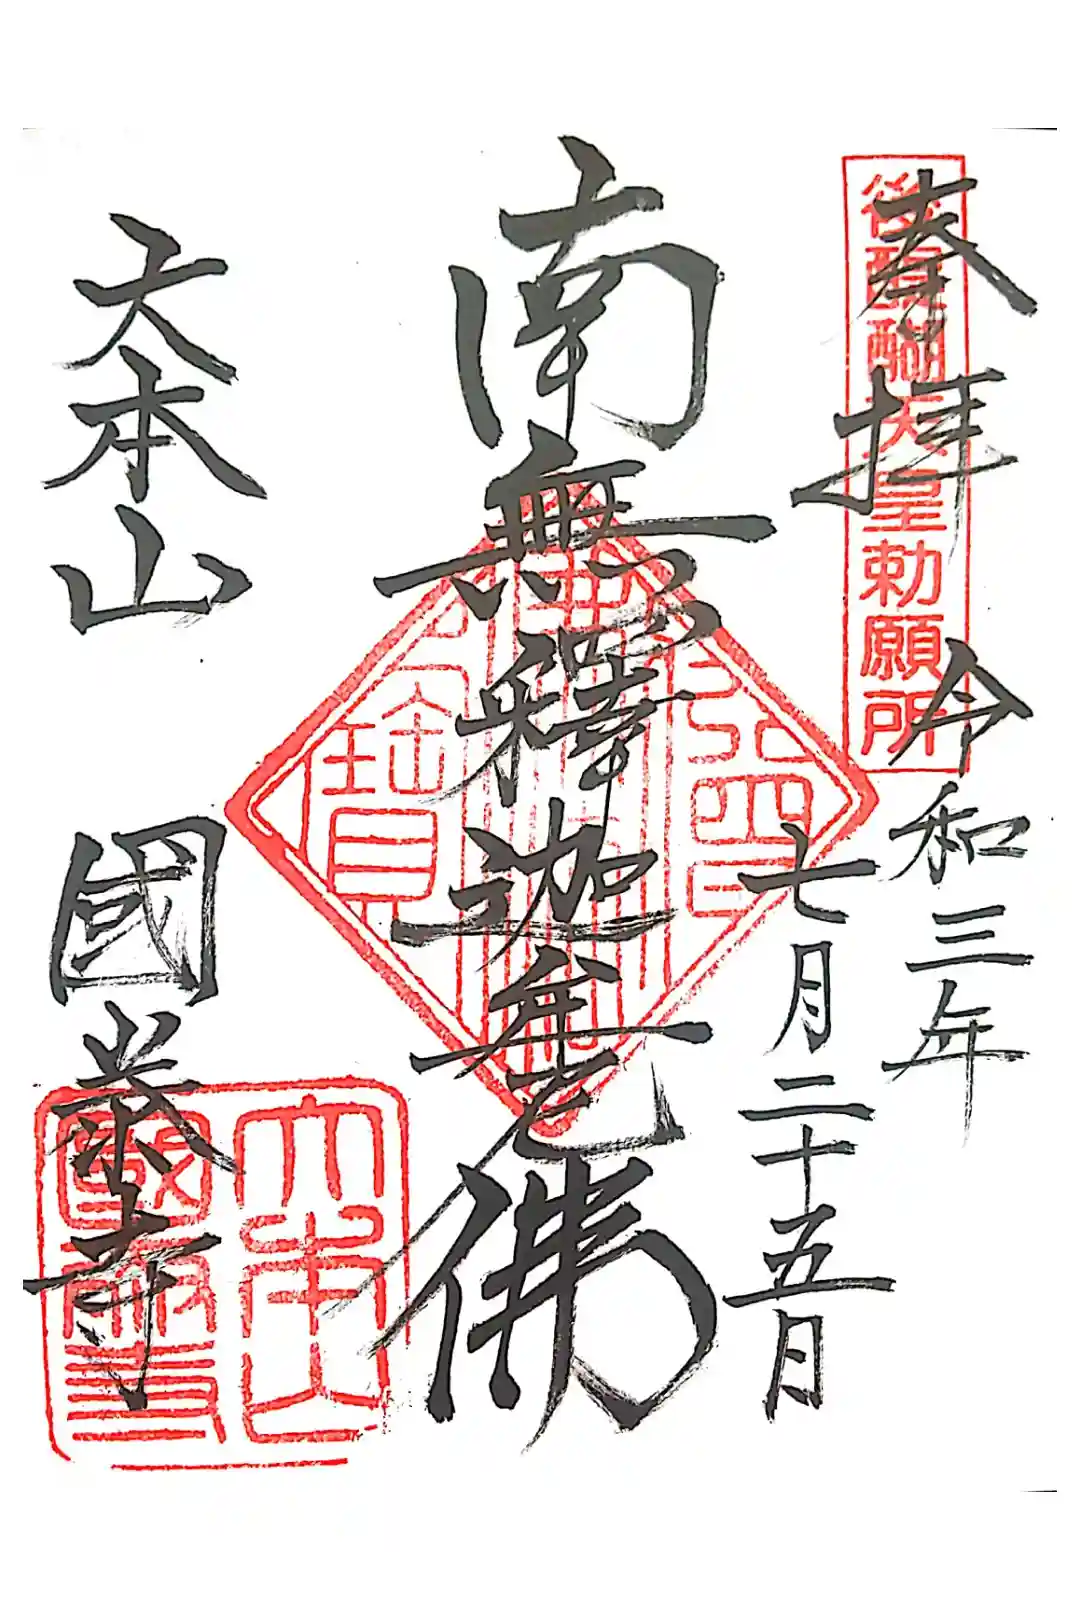 奉拝
後醍醐天皇勅願所
令和三年
七月二十五日
南無釋迦牟尼佛
大本山
國泰寺